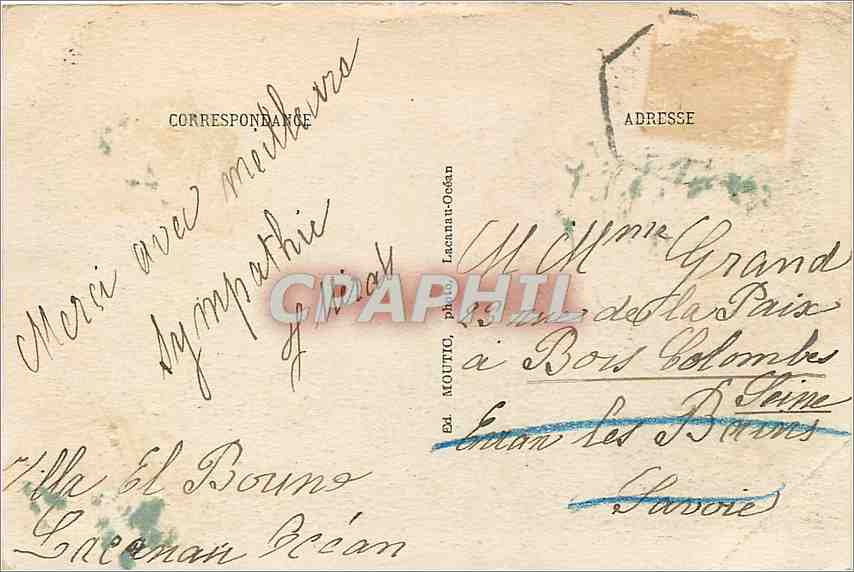 CORRESPONDANCE
Merci avec meilleure
sympathie
Villa El Boune
Lacanau Océan
Ed. MOUTIC, photo, Lacanau-Océan
CPAPHIL
ADRESSE
M Mme Grand
23 rue de la Paix
à Bois Colombes
Seine
Evian les Bains
Savoie